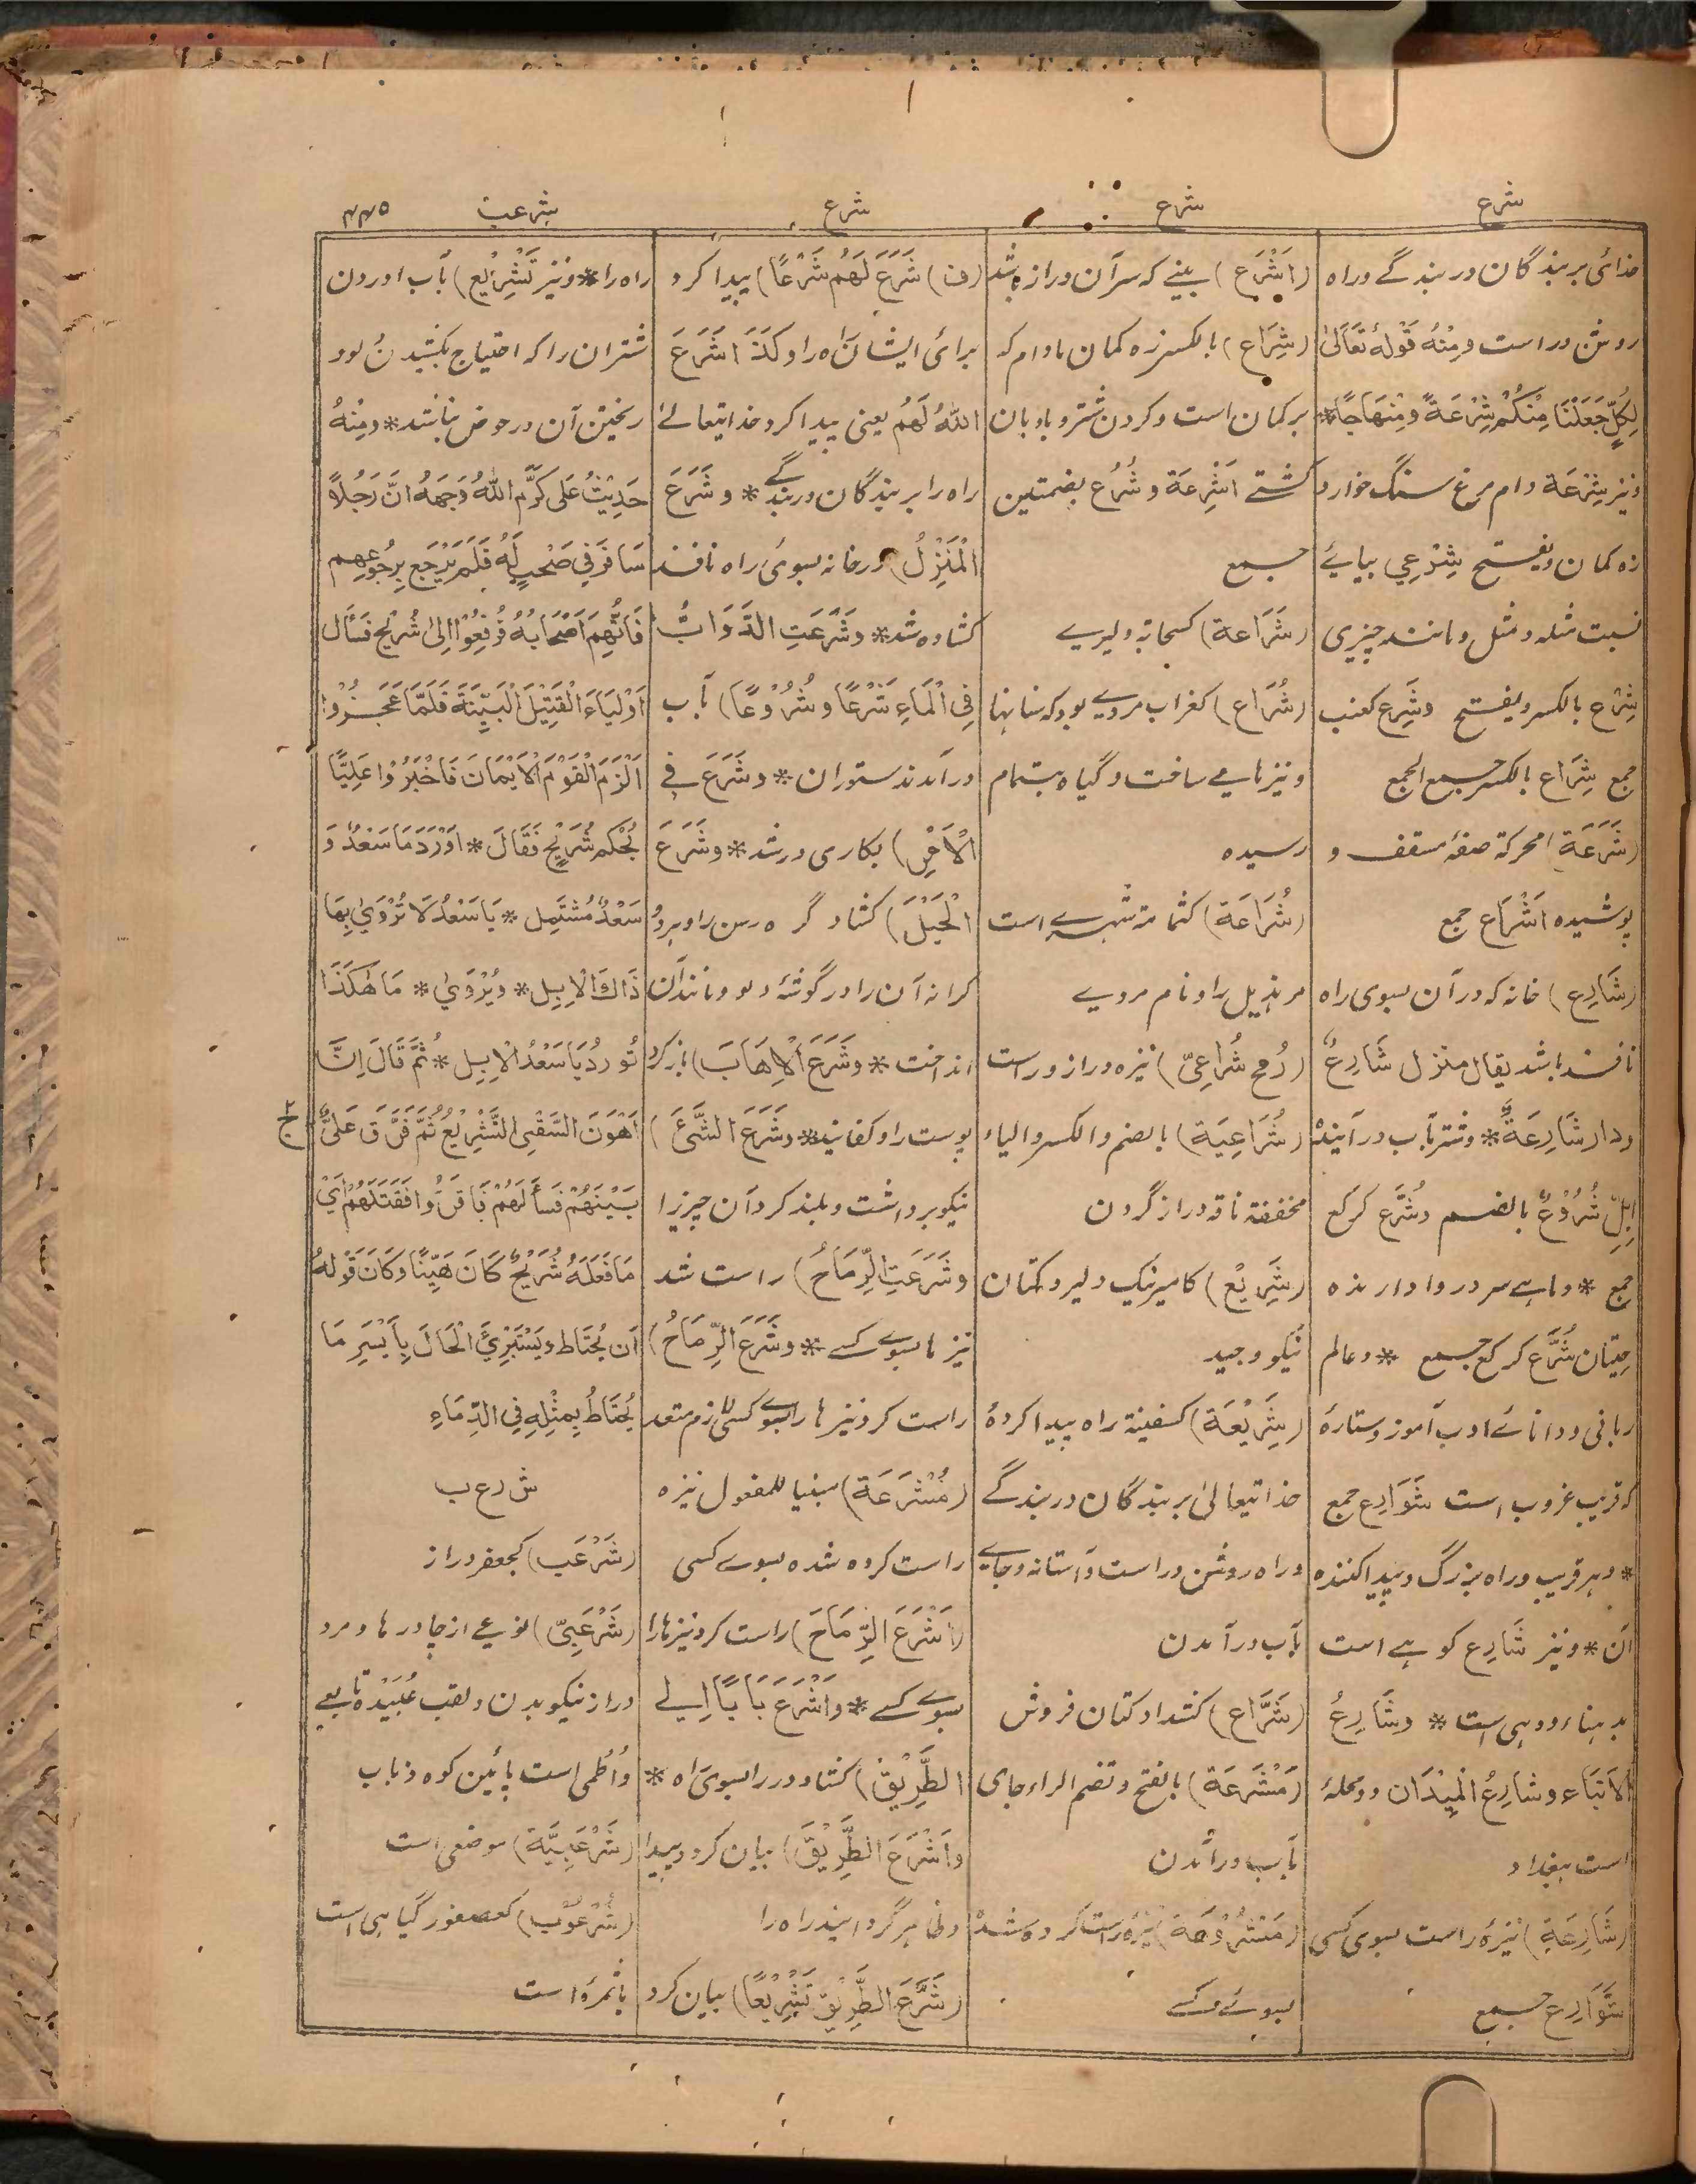 شرع
شرع
شرع
شرعب
۴۴۵
خدائی بر بندگان در بندگے و راه
روشن و راست و مِنْهُ قَوْلُهُ تَعَالیٰ
لِكُلٍّ جَعَلْنَا مِنْكُمْ شِرْعَةً وَمِنْهَاجًا*
و نیز شِرْعَة دام مرغ سنگ خوار و
زه کمان و یفتح شِرْعِي بیائے
نسبت مثله و مثل و مانند چیزی
شِرْع بالکسر و یفتح وشِرَع کعنب
جمع شِرَاع بالکسر جمع الجمع
(شَرَعَة) محرکة صفهٔ مسقف و
پوشیده اَشْرَاع جمع
(شَارِع) خانه که در آن بسوی راه
نافذ باشد یقال منزل شَارِعٌ
و دار شَارِعَةٌ* و شتر بآب در آینده
اِبِلٌ شُرُوْعٌ بالضم وشُرَّع کرکع
جمع * و ماهے سر در وا دارنده
حِيْتَان شُرَّع کرکع جمع * و عالم
ربانی و دانائے ادب آموز و ستارهٔ
که قریب غروب است شَوَارِع جمع
* و هر قریب و راه بزرگ و پیدا کننده
آن * و نیز شَارِع کوهے است
بدهناء و دهی است * وشَارِعُ
الاَنْبَاء وشَارِعُ الْمَيْدَان دو محلهٔ
است ببغداد
(شَارِعَة) نیزهٔ راست بسوی کسی
شَوَارِع جمع
(اَشْرَع) بینے که سر آن دراز باشد
(شِرَاع) بالکسر زه کمان مادام که
بر کمان است و گردن شتر و بادبان
کشتے اَشْرِعَة وشُرُع بضمتین
جمع
(شَرَاعة) کسحابة دلیرے
(شُرَاع) کغراب مردے بود که سنانها
و نیزها مے ساخت و گیاه بتمام
رسیده
(شُرَاعَة) کثمامة شهرے است
مر هذیل را و نام مردے
(رُمح شُرَاعِيّ) نیزه دراز و راست
(شُرَاعِيَة) بالضم و الکسر و الیاء
مخففة ناقه دراز گردن
(شَرِيْع) کامیر نیک دلیر و کتان
نیکو و جید
(شَرِيْعَة) کسفینة راه پیدا کردهٔ
خدا تیعالیٰ بر بندگان در بندگے
و راه روشن و راست و آستانه و جاے
بآب در آمدن
(شَرَّاع) کشداد کتان فروش
(مَشْرَعَة) بالفتح و تضم الراء جای
بآب در آمدن
(مَشْرُوْعَة) نیزهٔ راست کرده شده
بسوئے کسے
(ف) شَرَعَ لَهُمْ شَرْعًا) پیدا کرد
برائے ایشان راه را و كَذَا شَرَعَ
اللهُ لَهُم یعنی پیدا کرد خدا تیعالیٰ
راه را بر بندگان در بندگے * و شَرَعَ
الْمَنْزِلُ) در خانه بسوی راه نافذ
کشاده شد * وشَرَعَتِ الدَّوَابُّ
فِي الْمَاءِ شَرْعًا وشُرُوْعًا) بآب
در آمدند ستوران * و شَرَعَ فِي
الْاَمْرِ) بکاری در شد * وشَرَعَ
الْحَبْلَ) کشاد گره رسن را و هر دو
کرانه آن را در گوشهٔ دلو و مانند آن
انداخت * وشَرَعَ الْاِهَابَ) باز کرد
پوست را و کفانید * وشَرَعَ الشَّيْءَ)
نیکو برداشت و بلند کرد آن چیز را
وشَرَعَتِ الرِّمَاحُ) راست شد
نیزها بسوے کسے * وشَرَعَ الرِّمَاحُ)
راست کرد نیزها را بسوے کسی لازم متعد
(مُشْرَعَة) مبنیا للمفعول نیزه
راست کرده شده بسوے کسی
(اَشْرَعَ الرِّمَاحَ) راست کرد نیزها را
بسوے کسے * واَشْرَعَ بَابًا اِلٰى
الطَّرِيْقِ) کشاد در را بسوی راه *
واَشْرَعَ الطَّرِيْقَ) بیان کرد و پیدا
و ظاهر گردانید راه را
(شَرَّعَ الطَّرِيْقَ تَشْرِيْعًا) بیان کرد
راه را * و نیز تَشْرِيْع) بآب اوردن
شتران را که احتیاج بکشیدن دلو و
ریختن آن در حوض نباشد * و مِنْهُ
حَدِيْثُ عَلِيٍّ كَرَّمَ اللهُ وَجهَهُ انَّ رَجُلًا
سَافَرَ فِي صَحْبٍ لَهُ فَلَمْ يَرْجِع بِرُجُوْعِهِم
فَاتَّهَمَ اَصْحَابَهُ فَرُفِعُوْا اِلىٰ شُرَيْح فَسَاَلَ
اَوْلِيَاءَ الْقَتِيْلِ الْبَيِّنَةَ فَلَمَّا عَجَزُوْا
اَلْزَمَ الْقَوْمَ الْاَيْمَانَ فَاخْبَرُوْا عَلِيًّا
بِحُكْمِ شُرَيْحٍ فَقَالَ * اَوْرَدَهَا سَعْدٌ وَ
سَعْدٌ مُشْتَمِل * يَا سَعْدُ لَا تُرْوٰى بِهَا
ذَاكَ الْاِبِل * وَيُرْوٰى * مَا هٰكَذَا
تُورِدُ يَا سَعْدُ الْاِبِل * ثُمَّ قَالَ اِنَّ
اَهْوَنَ السَّقْيِ التَّشْرِيْعُ ثُمَّ فَرَّقَ عَلِيٌّ
بَيْنَهُمْ فَسَأَلَهُمْ فَاقَرُّوا فَقَتَلَهُمْ اَيْ
مَا فَعَلَهُ شُرَيْحٌ كَانَ هَيِّنًا وَكَانَ قَوْلُهُ
اَن يُحْتَاط وَيَسْتَبْرِئَ الْحَالَ بِاَيْسَرِ مَا
يُحْتَاطُ بِمِثْلِهِ فِي الدِّمَاءِ
ش ر ع ب
(شَرْعَب) کجعفر دراز
(شَرْعَبِيّ) نوعے از چادرها و مرد
دراز نیکو بدن و لقب عُبَيْدة تابعے
و اُطُمی است پائین کوه ذباب
(شَرْعَبِيَّة) موضعی است
(شُرْعُوْب) کعصفور گیاهی است
یا ثمرهٔ است